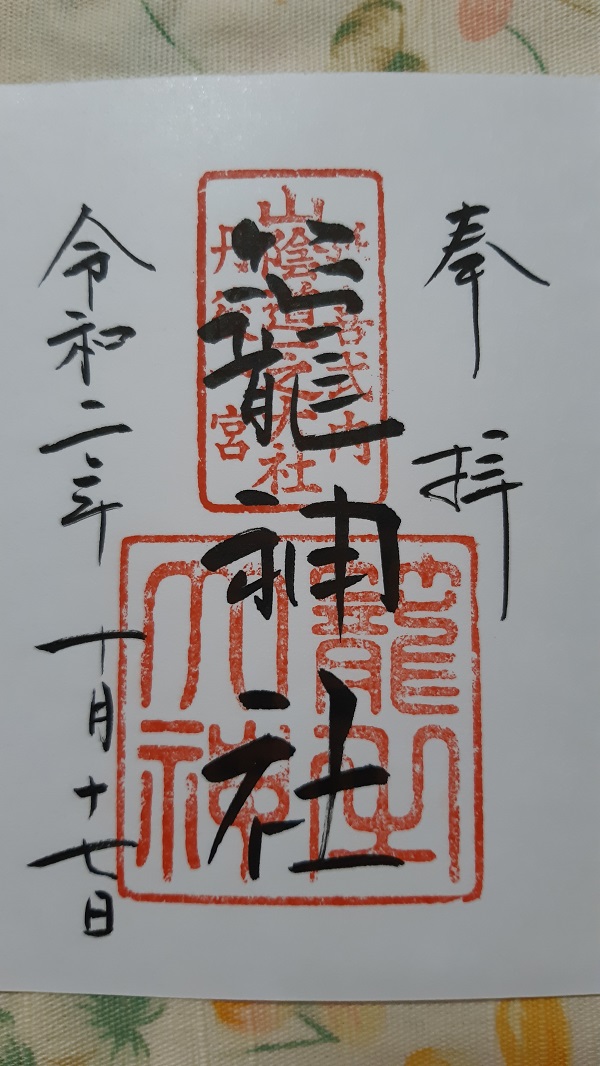 奉拝
延喜式内
山陰道之大社
丹後一宮
籠神社
籠之
大神
令和二年十月十七日